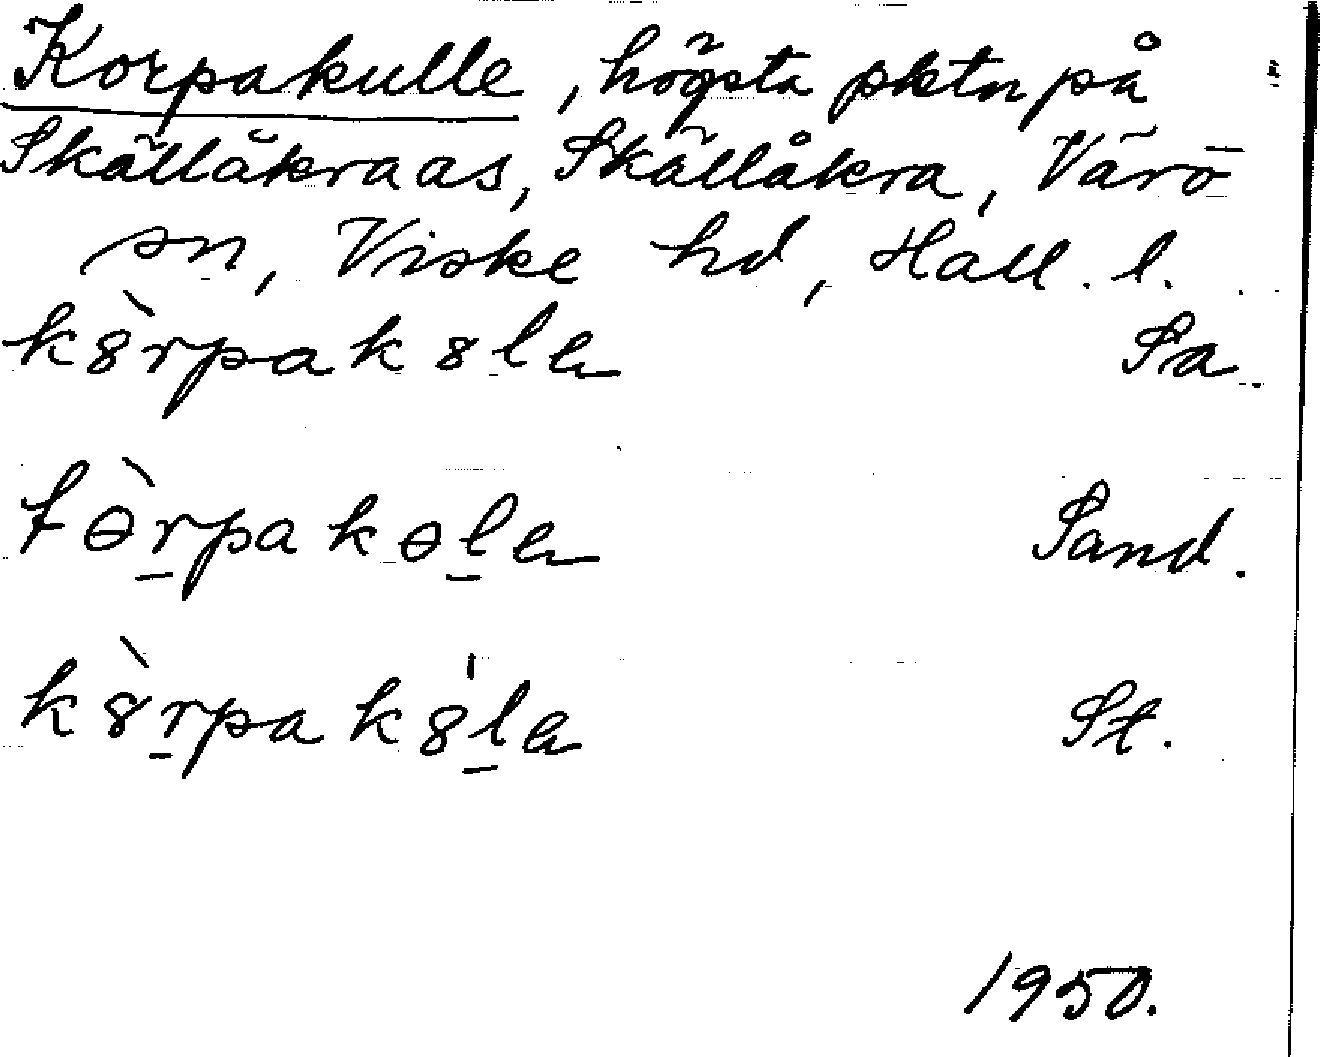 Korpakulle, högsta pktn på
Skällåkraås, Skällåkra, Värö
sn, Viske hd, Hall. l.
kȣ̀rpakȣlɐ Sa.
kɵ̀rpakɵlɐ Sand.
kȣ̀rpakȣ̍lɐ St.
1950.